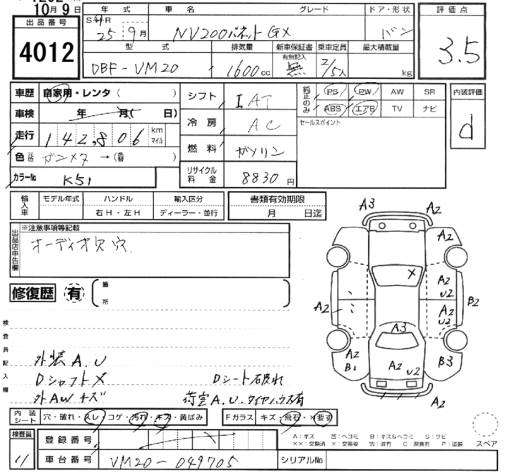 10月9日
出品番号
4012
年式 車名 グレード ドア・形状 評価点
25年9月 NV200バネット GX バン 3.5
型式 排気量 新車保証書 乗車定員 最大積載量
有無記入
DBF-VM20 1600cc 無 2/5人 kg
車歴 自家用・レンタ( )
車検 年 月( 日)
走行 142,806 km マイル
色 ガンメタ →( )
カラーNo K51
シフト IAT
冷房 AC
燃料 ガソリン
リサイクル料金 8830円
純正のみ PS PW AW SR
ABS エアB TV ナビ
セールスポイント
内装評価
d
輸入車 モデル年式 ハンドル 輸入区分 書類有効期限
右H・左H ディーラー・並行 月 日迄
出品店申告欄 ※注意事項等記載
オーディオ欠 穴
修復歴 有 箇所
検査員記入欄
外装A.U
Dシャフト× Dシート破れ
外AWキズ 荷室A.U.タイヤハウス有
A3 A2 A2 A2 A2 U2 B2 A2 U2 A3 A2 U2 B1 A2 B3 A2
内装シート 穴・破れ・スレ・コゲ・汚れ・キズ・黄ばみ Fガラス キズ・飛石・×要す
A:キズ
スペア
検査員 登録番号
11 車台番号 VM20-049705 シリアルNo